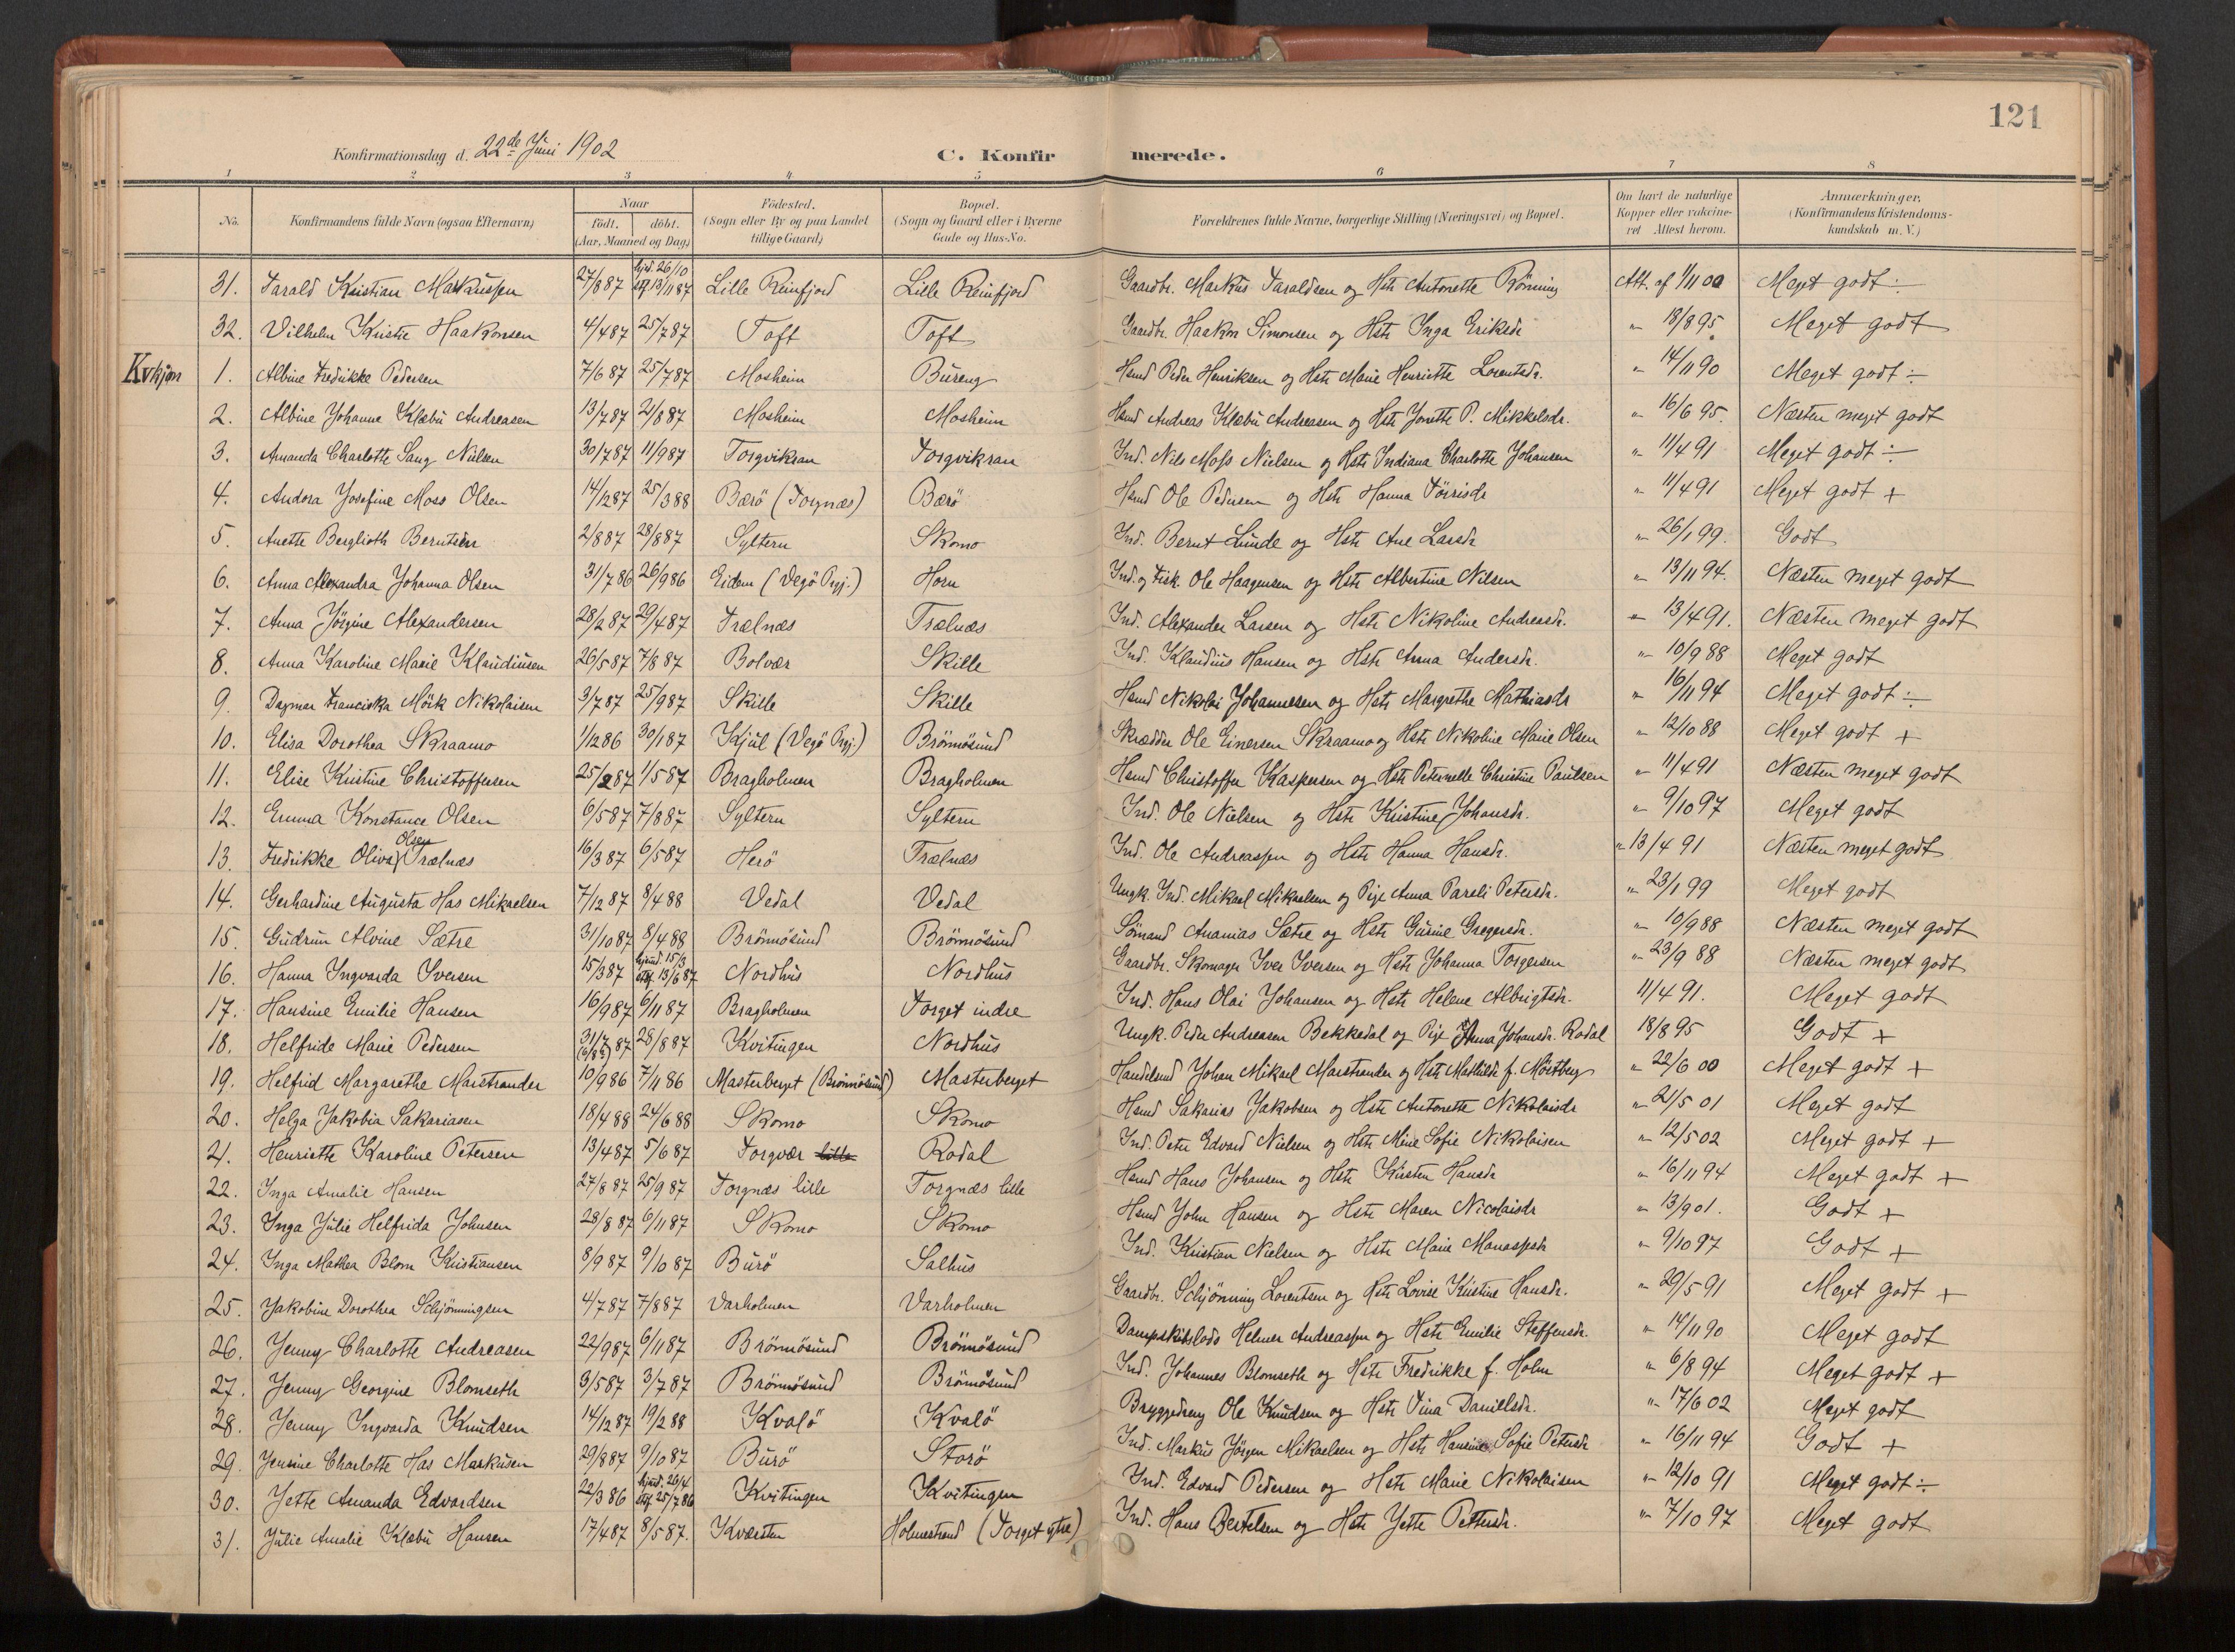 121
Konfirmationsdag d. 22de Juni 1902
C. Konfirmerede.
1 2 3 4 5 6 7 8
No. Konfirmandens fulde Navn (ogsaa Efternavn) Naar Födt. döbt. (Aar, Maaned og Dag) Födested. (Sogn eller By og paa Landet tillige Gaard) Bopæl. (Sogn og Gaard eller i Byerne Gade og Hus-No. Forældrenes fulde Navne, borgerlige Stilling (Næringsvei) og Bopæl. Om havt de naturlige Kopper eller vakcineret Attest herom. Anmærkninger. (Konfirmandens Kristendomskundskab m. V.)
31. Tarald Kristian Markussen 27/8 87 hjd. 26/10 stf. 13/11 87 Lille Reinfjord Lille Reinfjord Gaardbr. Markus Taraldsen og Hstr Antonette Rönning Att. af 1/11 00 Meget godt ÷
32. Vilhelm Kristr Haakonsen 4/4 87 25/7 87 Toft Toft Gaardbr. Haakon Simonsen og Hstr Inga Eriksdr " 18/8 95 Meget godt
Kvkjøn 1. Albine Fredrikke Pedersen 7/6 87 25/7 87 Mosheim Bureng Hsmd Peder Henriksen og Hstr Marie Henriette Lorentsdr. " 14/11 90 Meget godt ÷
2. Albine Johanne Klæbu Andreasen 13/7 87 21/8 87 Mosheim Mosheim Hsmd Andreas Klæbu Andreasen og Hstr Jonette P. Mikkelsdr. " 16/6 95. Næsten meget godt
3. Amanda Charlotte Sang Nilsen 30/7 87 11/9 87 Torgvikran Torgvikran Ind. Nils Moss Nielsen og Hstr Indiana Charlotte Johansen " 11/4 91 Meget godt ÷
4. Andora Josefine Moss Olsen 14/12 87 25/3 88 Bærö (Torgnæs) Bærö Hsmd Ole Pedersen og Hstr Hanna Töirisdr " 11/4 91 Meget godt +
5. Anette Berglioth Berntsen 2/8 87 28/8 87 Syltern Skomo Ind. Bernt Lunde og Hstr Ane Larsdr " 26/1 99. Godt
6. Anna Alexandra Johanna Olsen 31/7 86 26/9 86 Eidem (Vegö Pgj.) Horn Ind. og Fisk. Ole Haagensen og Hstr Albertine Nilsen " 13/11 94. Næsten meget godt
7. Anna Jörgine Alexandersen 28/2 87 29/4 87 Trælnæs Trælnæs Ind. Alexander Larsen og Hstr Nikoline Andreasdr. " 13/4 91. Næsten meget godt
8. Anna Karoline Marie Klaudiusen 26/5 87 7/8 87 Bolvær Skille Ind. Klaudius Hansen og Hstr Anna Andersdr. " 10/9 88 Meget godt
9. Dagmar Franciska Mörk Nikolaisen 3/7 87 25/9 87 Skille Skille Hsmd Nikolai Johannesen og Hstr Margrethe Mathiasdr " 16/11 94 Meget godt ÷
10. Elisa Dorothea Skraamo 1/12 86 30/1 87 Kjul (Vegö Pgj.) Brönnösund Skrædder Ole Einersen Skraamo og Hstr Nikoline Marie Olsen " 12/10 88 Meget godt +
11. Elise Kristine Christoffersen 25/2 87 1/5 87 Bragholmen Bragholmen Hsmd Christoffer Kaspersen og Hstr Peternelle Christine Paulsen " 11/4 91 Næsten meget godt
12. Emma Konstance Olsen 6/5 87 7/8 87 Syltern Syltern Ind. Ole Nielsen og Hstr Kristine Johansdr. " 9/10 97 Meget godt
13. Fredrikke Oliva Olsen Trælnæs 16/3 87 6/5 87 Herö Trælnæs Ind. Ole Andreassen og Hstr Hanna Hansdr. " 13/4 91 Næsten meget godt
14. Gerhardine Augusta Has Mikaelsen 7/12 87 8/4 88 Vedal Vedal Ungk. Ind. Mikael Mikaelsen og Pige Anna Pareli Petersdr. " 23/1 99 Meget godt
15. Gudrun Alvine Sætre 31/10 87 8/4 88 Brönnösund Brönnösund Sömand Ananias Sætre og Hstr Gurine Gregersdr. " 10/9 88 Næsten meget godt
16. Hanna Ingvarda Iversen 15/3 87 hjemd. 15/3 stf. 13/6 87 Nordhus Nordhus Gaardbr. Skomager Iver Iversen og Hstr Johanna Torgersen " 23/9 88 Næsten meget godt
17. Hansine Emilie Hansen 16/9 87 6/11 87 Bragholmen Torget indre Ind. Hans Olai Johansen og Hstr Helene Albrigtsdr. 11/4 91. Meget godt
18. Helfride Marie Pedersen 31/7 87 (6/8?) 28/8 87 Kvitingen Nordhus Ungk. Peder Andreasen Bekkedal og Pige Anna Johansdr. Rodal 18/8 95 Godt +
19. Helfrid Margarethe Marstrander 10/9 86 7/11 86 Masterberget (Brönnösund) Masterberget Handelsmd Johan Mikael Marstrander og Hstr Mathilde f. Möstberg " 22/6 00 Meget godt +
20. Helga Jakobia Sakariasen 18/4 88 24/6 88 Skomo Skomo Hsmd Sakarias Jakobsen og Hstr Antonette Nikolaisdr " 21/5 01 Meget godt
21. Henriette Karoline Petersen 13/4 87 5/6 87 Torgvær lille Rodal Ind. Peter Edvard Nielsen og Hstr Mine Sofie Nikolaisen " 12/5 02 Meget godt +
22. Inga Amalie Hansen 27/8 87 25/9 87 Torgnæs lille Torgnæs lille Hsmd Hans Johansen og Hstr Kirsten Hansdr " 16/11 94 Meget godt +
23. Inga Julie Helfrida Johnsen 28/8 87 6/11 87 Skomo Skomo Hsmd John Hansen og Hstr Maren Nicolaisdr " 13/9 01. Godt +
24. Inga Mathea Blom Kristiansen 8/9 87 9/10 87 Burö Salhus Ind. Kristian Nielsen og Hstr Marie Manassesdr " 9/10 97 Godt +
25. Jakobine Dorothea Schjönningsen 4/7 87 7/8 87 Varholmen Varholmen Gaardbr. Schjönning Lorentsen og Hstr Lovise Kristine Hansdr. " 29/5 91 Meget godt +
26. Jenny Charlotte Andreasen 22/9 87 6/11 87 Brönnösund Brönnösund Dampskibslods Helmer Andreassen og Hstr Emilie Steffensdr. " 14/11 90 Meget godt
27. Jenny Georgine Blomseth 3/5 87 3/7 87 Brönnösund Brönnösund Ind. Johannes Blomseth og Hstr Fredrikke f. Holm " 6/8 94 Meget godt +
28. Jenny Ingvarda Knudsen 14/12 87 19/2 88 Kvalö Kvalö Bryggedreng Ole Knudsen og Hstr Tina Danielsdr. " 17/6 02 Meget godt
29. Jensine Charlotte Has Markusen 29/8 87 9/10 87 Burö Storö Ind. Markus Jörgen Mikaelsen og Hstr Hansine Sofie Petersdr " 16/11 94 Godt +
30. Jette Amanda Edvardsen 22/3 86 hjemd. 26/4 stf. 25/7 86 Kvitingen Kvitingen Ind. Edvard Pedersen og Hstr Marie Nikolaisen " 12/10 91 Meget godt ÷
31. Julie Amalie Klæbu Hansen 17/4 87 8/5 87. Kværsten Holmestrand (Torget ytre) Ind. Hans Bertelsen og Hstr Jette Pettersdr. " 7/10 97 Meget godt